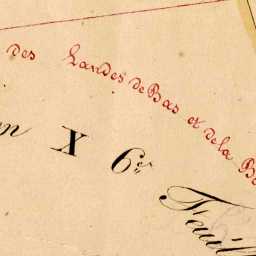 des Landes de Bas et de la
X 6e